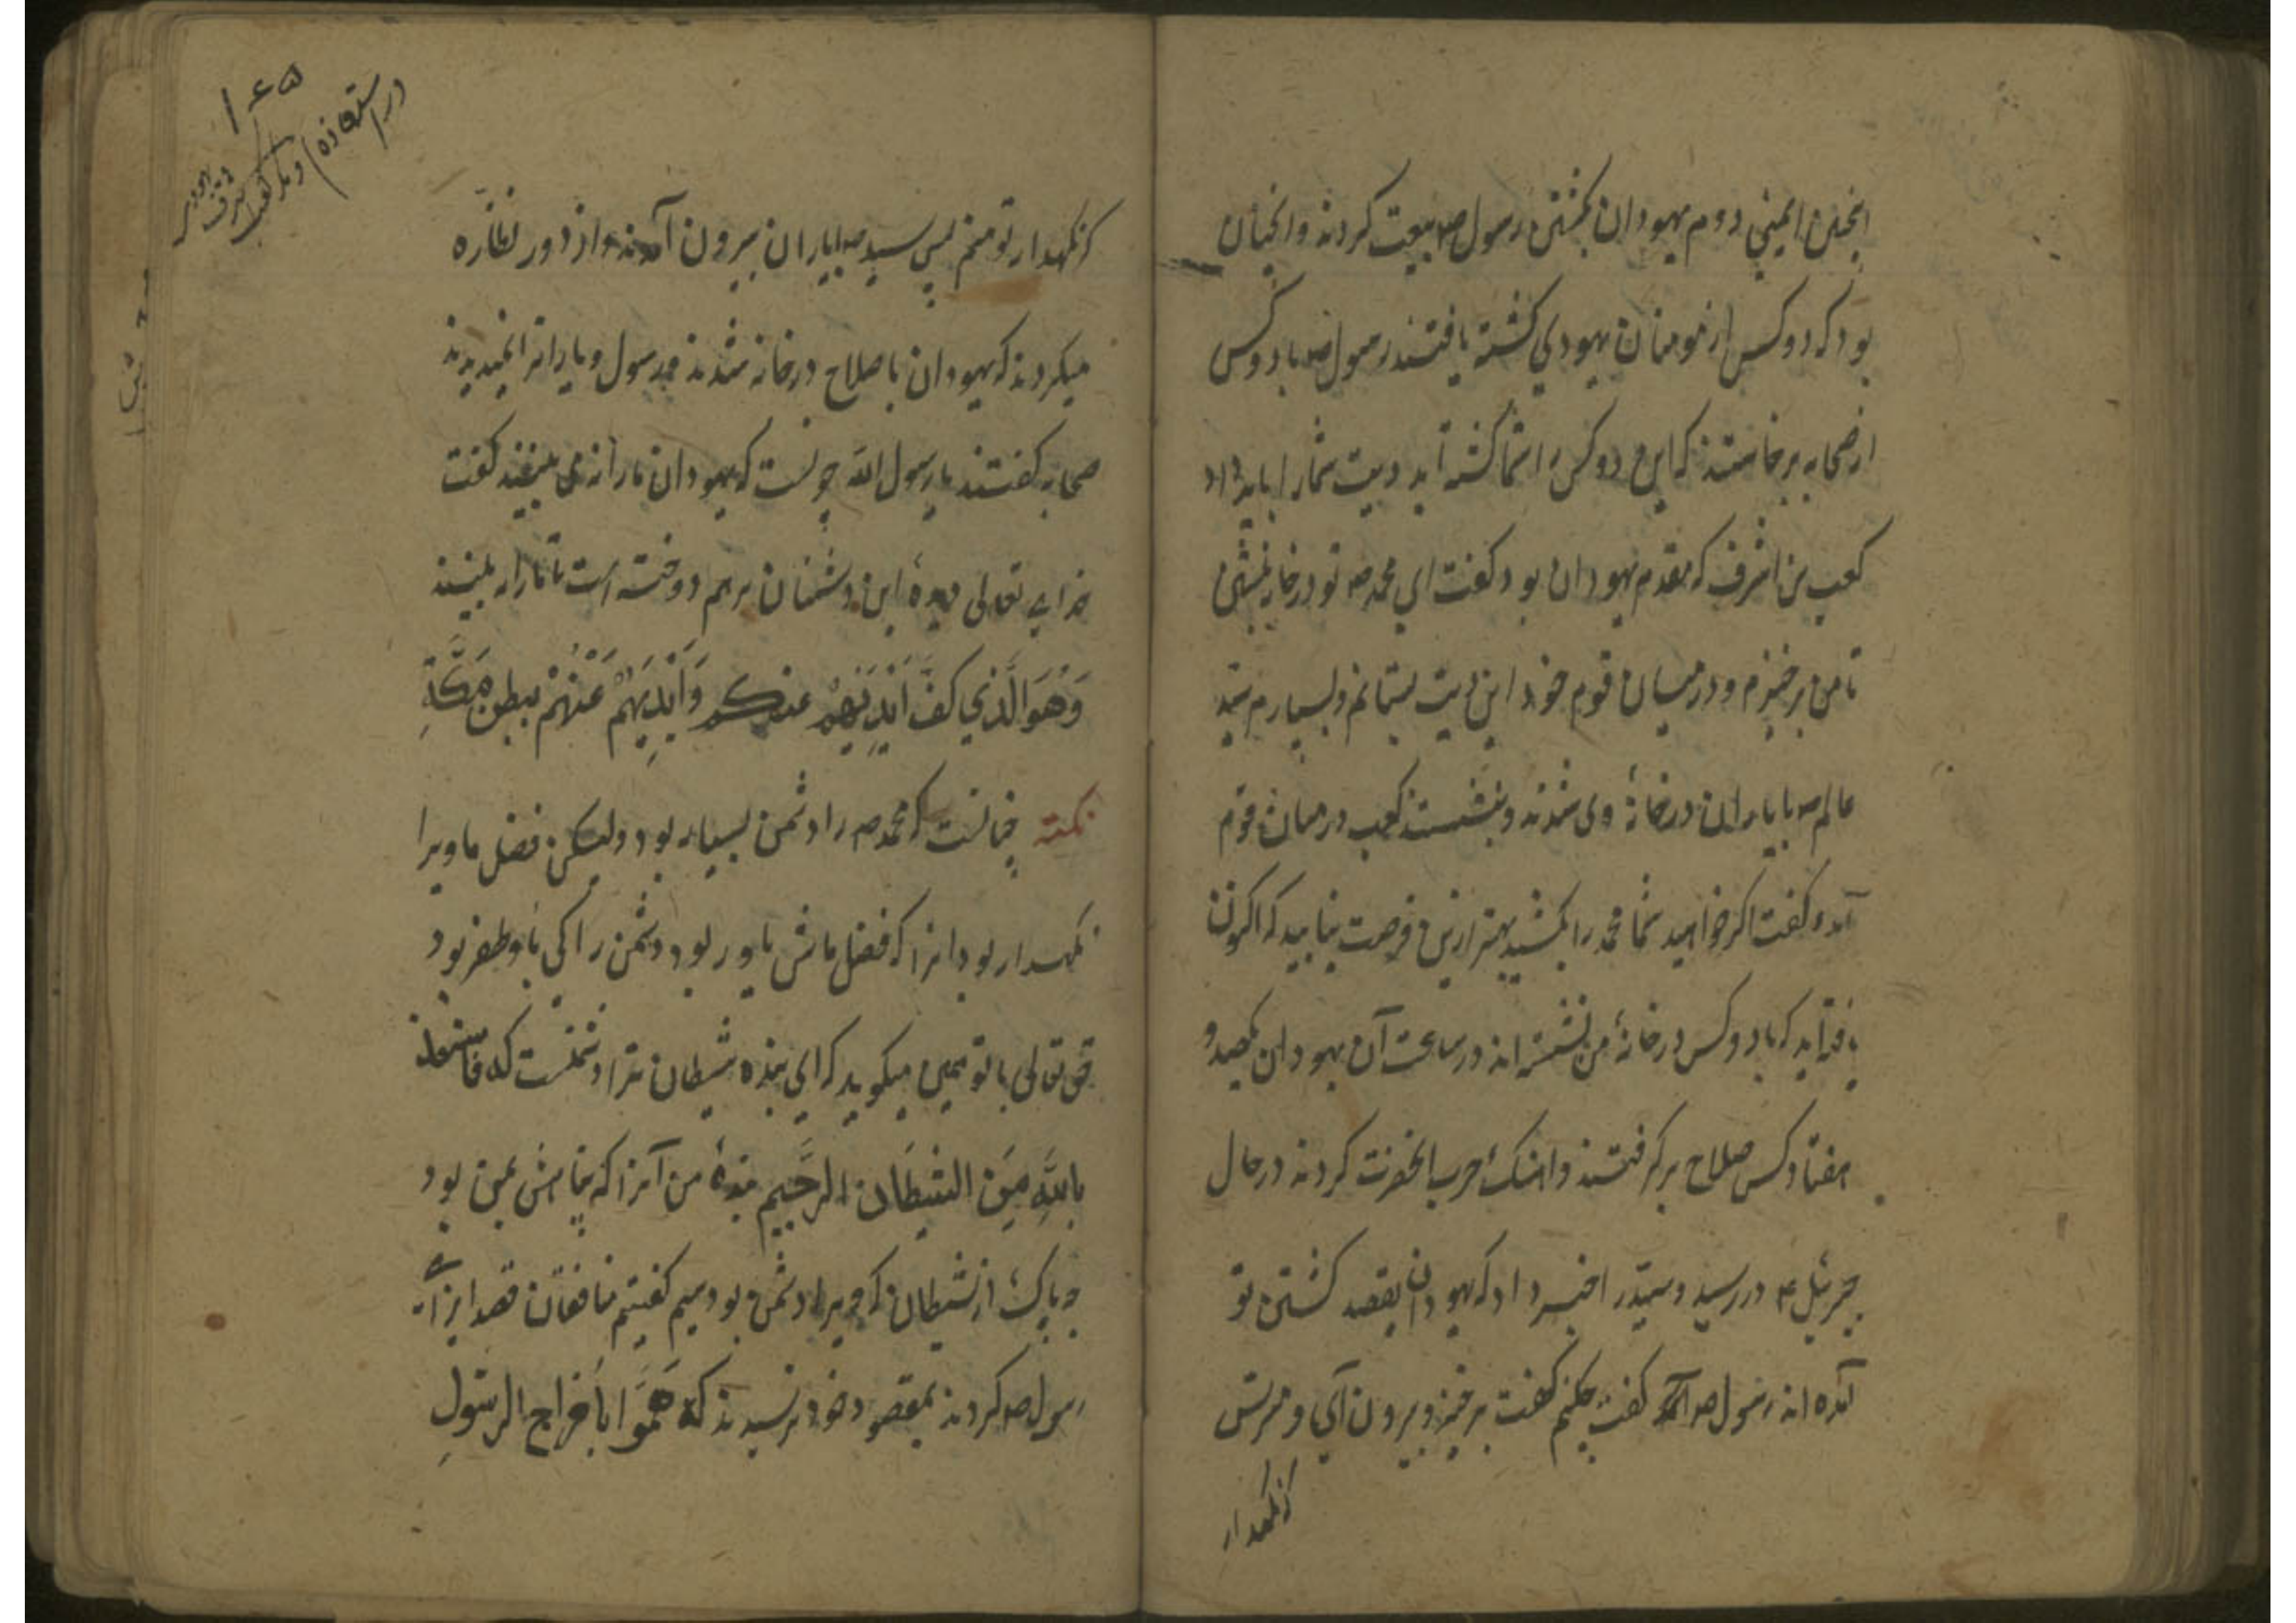 انجمن ایمنی دوم یهودان بکشتن رسول صه بیعت کردند وانچنان
بود که دو کس از مومنان یهودی کشته یافتند رسول صه با دو کس
از صحابه برخاستند که این دو کس را شما کشته اید دیت شما را باید داد
کعب بن اشرف که مقدم یهودان بود کفت ای محمد صه تو در خانه بنشین
تا من برخیزم و در میان قوم خود این دیت بستانم و بسپارم سید
عالم صه با یاران در خانهٔ وی شدند و بنشستند کعب در میان قوم
آمد و کفت اکر خواهید شما محمد را بکشید بهتر ازین فرصت نیابید که اکنون
یافته اید که با دو کس در خانهٔ من نشسته اند در ساعت آن یهودان یکصد و
هفتاد کس صلاح برکرفتند و اهنک حرب انحضرت کردند در حال
جبرئیل ع در رسید و سید را خبر داد که یهودان بقصد کشتن تو
آمده اند رسول صه کفت چکنم کفت برخیز و بیرون آی و مترس
کزنکهدار
در استعاذه
کزنکهدار تو منم پس سید صه با یاران بیرون آمدند و از دور نظاره
میکردند که یهودان با صلاح در خانه شدند و رسول و یارانرا نمیدیدند
صحابه کفتند یا رسول الله چونست که یهودان مارا نمی بینند کفت
خدای تعالی دیدهٔ این دشمنان برهم دوخته است تا مارا نه بینند
وَهُوَ الَّذِي كَفَّ اَيْدِيَهُمْ عنكم وَاَيْدِيَهُمْ عَنْهُمْ ببطن مَكَّةِ
نکته چنانست که محمد صه را دشمن بسیار بود ولیکن فضل ما ویرا
نکهدار بود انرا که فضل ماش یاور بود دشمن را کی باو ظفر بود
حق تعالی با تو همین میکوید که ای بنده شیطان ترا دشمنست که فاستعذ
بِاللَّهِ مِنَ الشَّيطَان الرَّجِيم بندهٔ من آنرا که پناهش بمن بود
چه باک از شیطان که ویرا دشمن بود سیم کفتیم منافقان قصد ایزآء
رسول صه کردند بمقصود خود نرسیدند که هَمُّوا بِاخراج الرسولِ